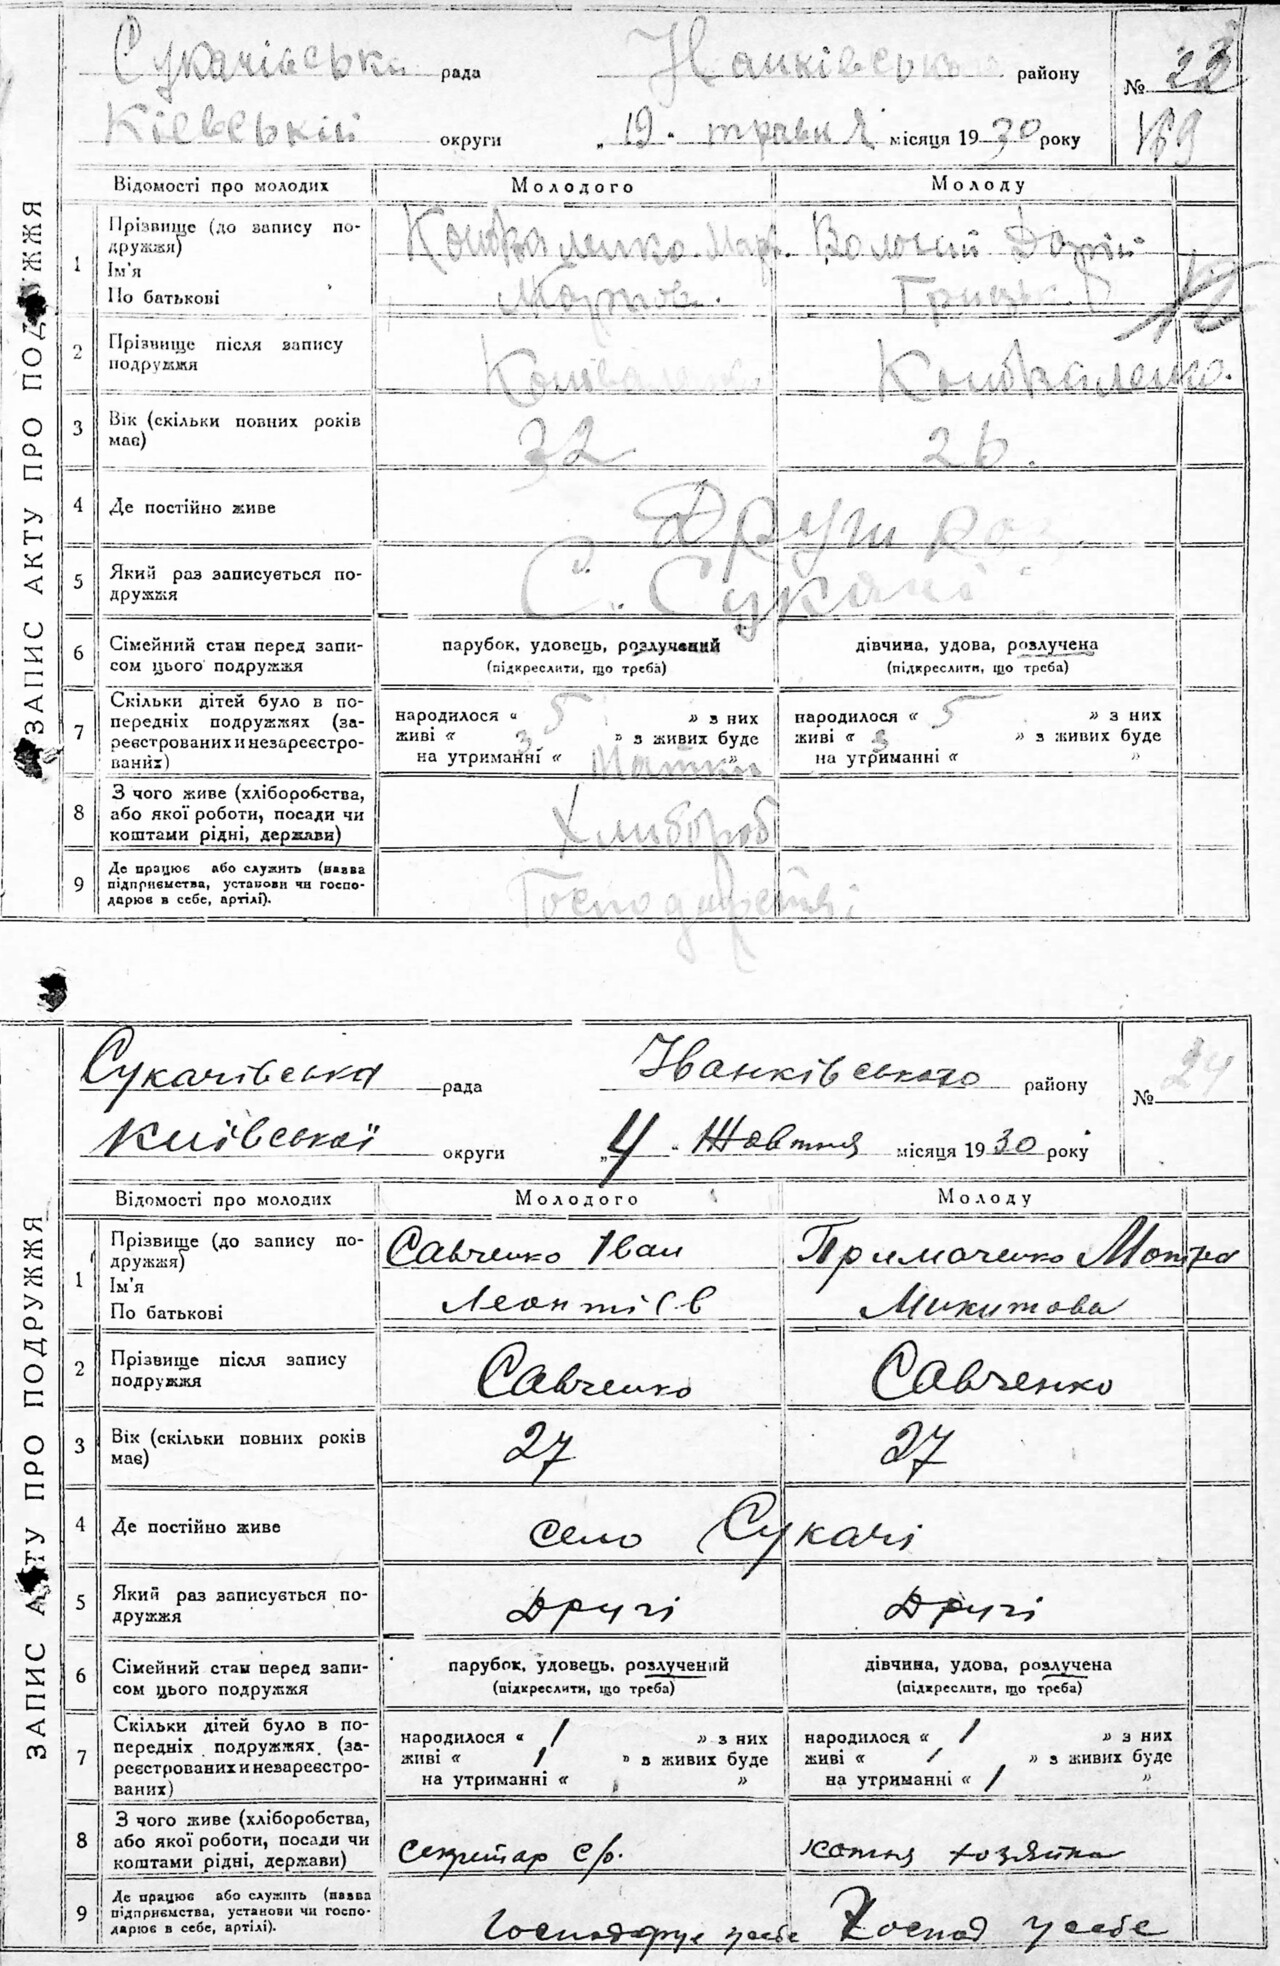 Сукачівська рада
району
№ 23
Кіевській округи
„ 19 " травня місяця 1930 року
169
ЗАПИС АКТУ ПРО ПОДРУЖЖЯ
Відомості про молодих
Молодого
Молоду
1
Прізвище (до запису по-
дружжя)
Ім'я
По батькові
Дарій
2
Прізвище після запису
подружжя
3
Вік (скільки повних років
має)
32
26.
4
Де постійно живе
Други
5
Який раз записується по-
дружжя
С. Сукачі
6
Сімейний стан перед запи-
сом цього подружжя
парубок, удовець, розлучений
(підкреслити, що треба)
дівчина, удова, розлучена
(підкреслити, що треба)
7
Скільки дітей було в по-
передніх подружжях (за-
реєстрованих и незареєстро-
ваних)
народилося „ 5 " з них
живі „ 3 " з живих буде
на утриманні „ "
народилося „ 5 " з них
живі „ 3 " з живих буде
на утриманні „ "
8
З чого живе (хліборобства,
або якої роботи, посади чи
коштами рідні, держави)
Хлибороб
9
Де працює або служить (назва
підприємства, установи чи госпо-
дарює в себе, артілі).
Сукачівська рада
Іванківського району
№ 24
Київської округи
„ 4 " Жовтня місяця 1930 року
ЗАПИС АКТУ ПРО ПОДРУЖЖЯ
Відомості про молодих
Молодого
Молоду
1
Прізвище (до запису по-
дружжя)
Ім'я
По батькові
Савченко Іван
Леонтіев
Примаченко Мотря
Микитова
2
Прізвище після запису
подружжя
Савченко
Савченко
3
Вік (скільки повних років
має)
27
27
4
Де постійно живе
село Сукачі
5
Який раз записується по-
дружжя
Другі
Другі
6
Сімейний стан перед запи-
сом цього подружжя
парубок, удовець, розлучений
(підкреслити, що треба)
дівчина, удова, розлучена
(підкреслити, що треба)
7
Скільки дітей було в по-
передніх подружжях (за-
реєстрованих и незареєстро-
ваних)
народилося „ 1 " з них
живі „ 1 " з живих буде
на утриманні „ "
народилося „ 1 " з них
живі „ 1 " з живих буде
на утриманні „ 1 "
8
З чого живе (хліборобства,
або якої роботи, посади чи
коштами рідні, держави)
секритар с/р.
хозяйка
9
Де працює або служить (назва
підприємства, установи чи госпо-
дарює в себе, артілі).
Господарує усебе
Господ усебе